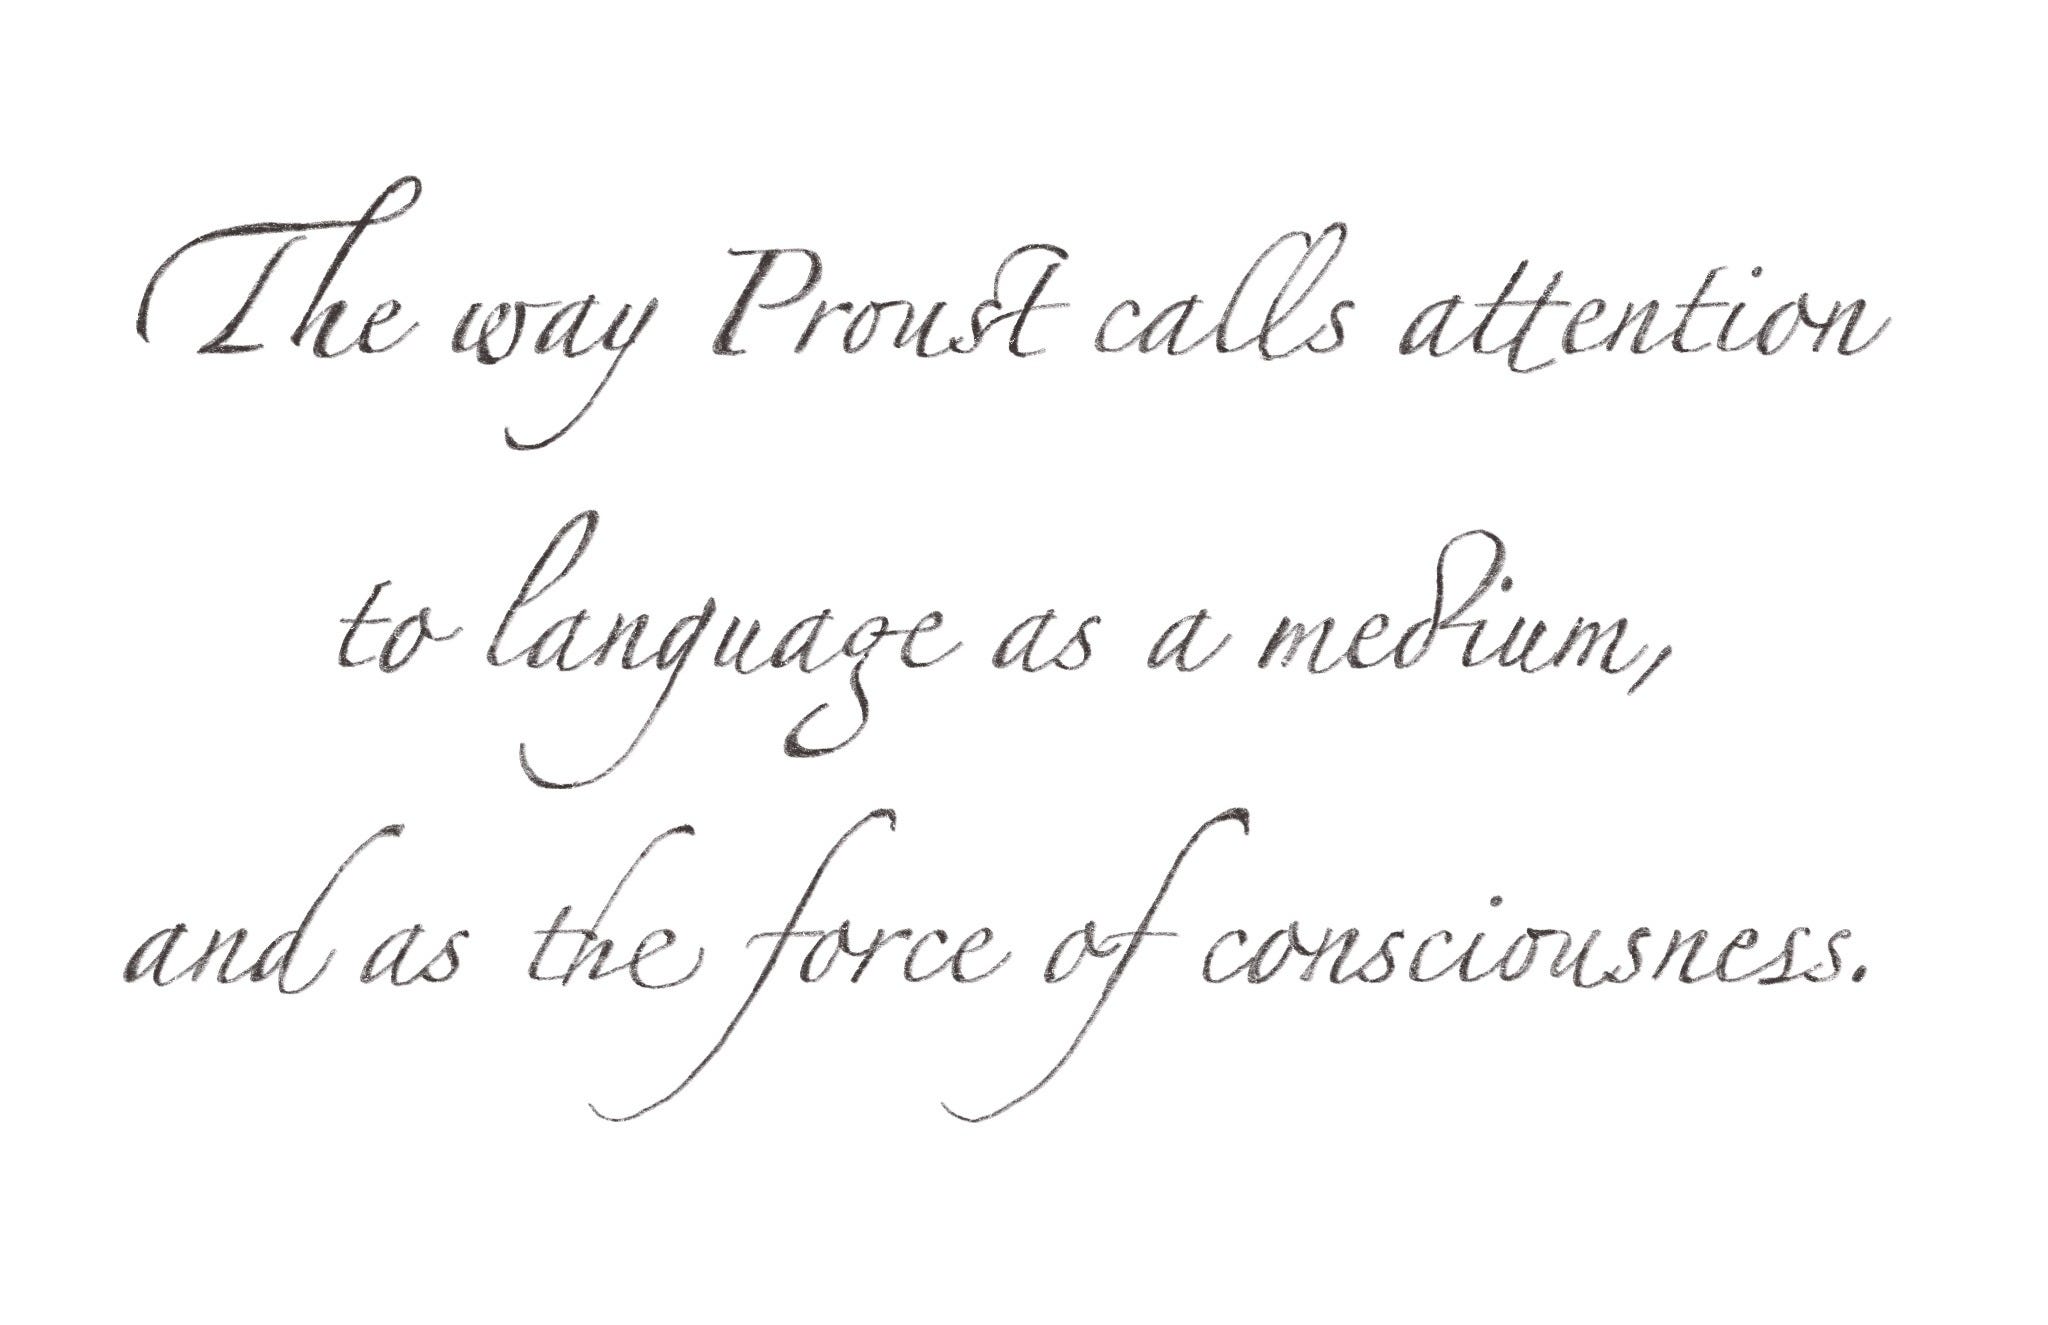 The way Proust calls attention
to language as a medium,
and as the force of consciousness.